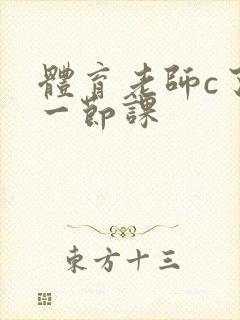 體育老師c了
一節課
東方十三